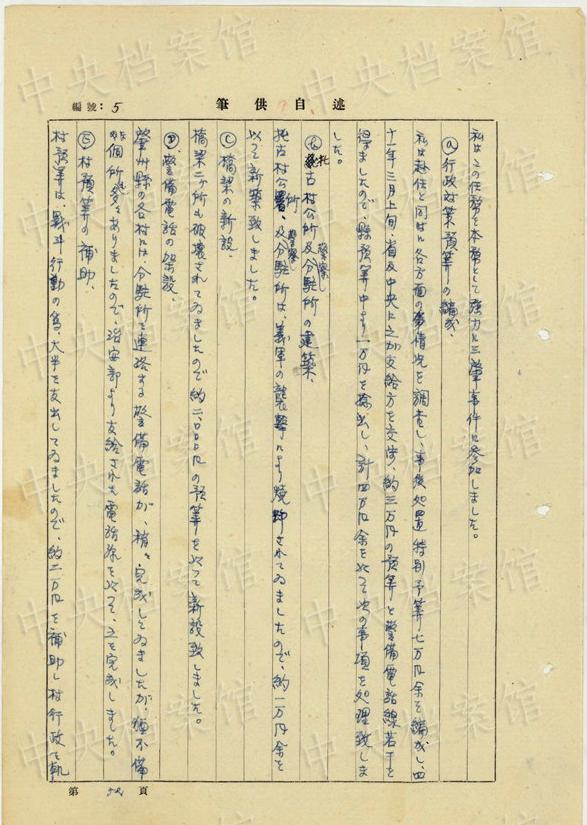 筆供自述
編號：5
私はこの任務を本務として強力に三肇事件に参加しました。
ⓐ行政対策予算の編成、
私は赴任と同時に各方面の事情況を調査し、事後処置特別予算七万円余を編成し、四
十一年三月上旬、省及中央に之が支給方を交渉、約三万円の予算と警備電話線若干を
得ましたので、縣予算中より一万円を捻出し、計四万円余を以て次の事項を処理致しま
した。
ⓑ托古村公所及警察分駐所の建築、
托古村公所、及警察分駐所は、義軍の襲撃により焼却されてゐましたので、約一万円余を
以て新築致しました。
ⓒ橋梁の新設、
橋梁二ケ所も破壊されてゐましたので約二、〇〇〇円の予算を以て新設致しました。
ⓓ警備電話の架設、
肇州縣の各村には、分駐所を連絡する警備電話が、稍々完成してゐましたが、尚不備
な個所も多々ありましたので、治安部より支給された電話線を以て、之を完成しました。
ⓔ村予算の補助、
村予算は、戦斗行動の為、大半を支出してゐましたので、約二万円を補助し村行政を執
第 頁
中央档案馆